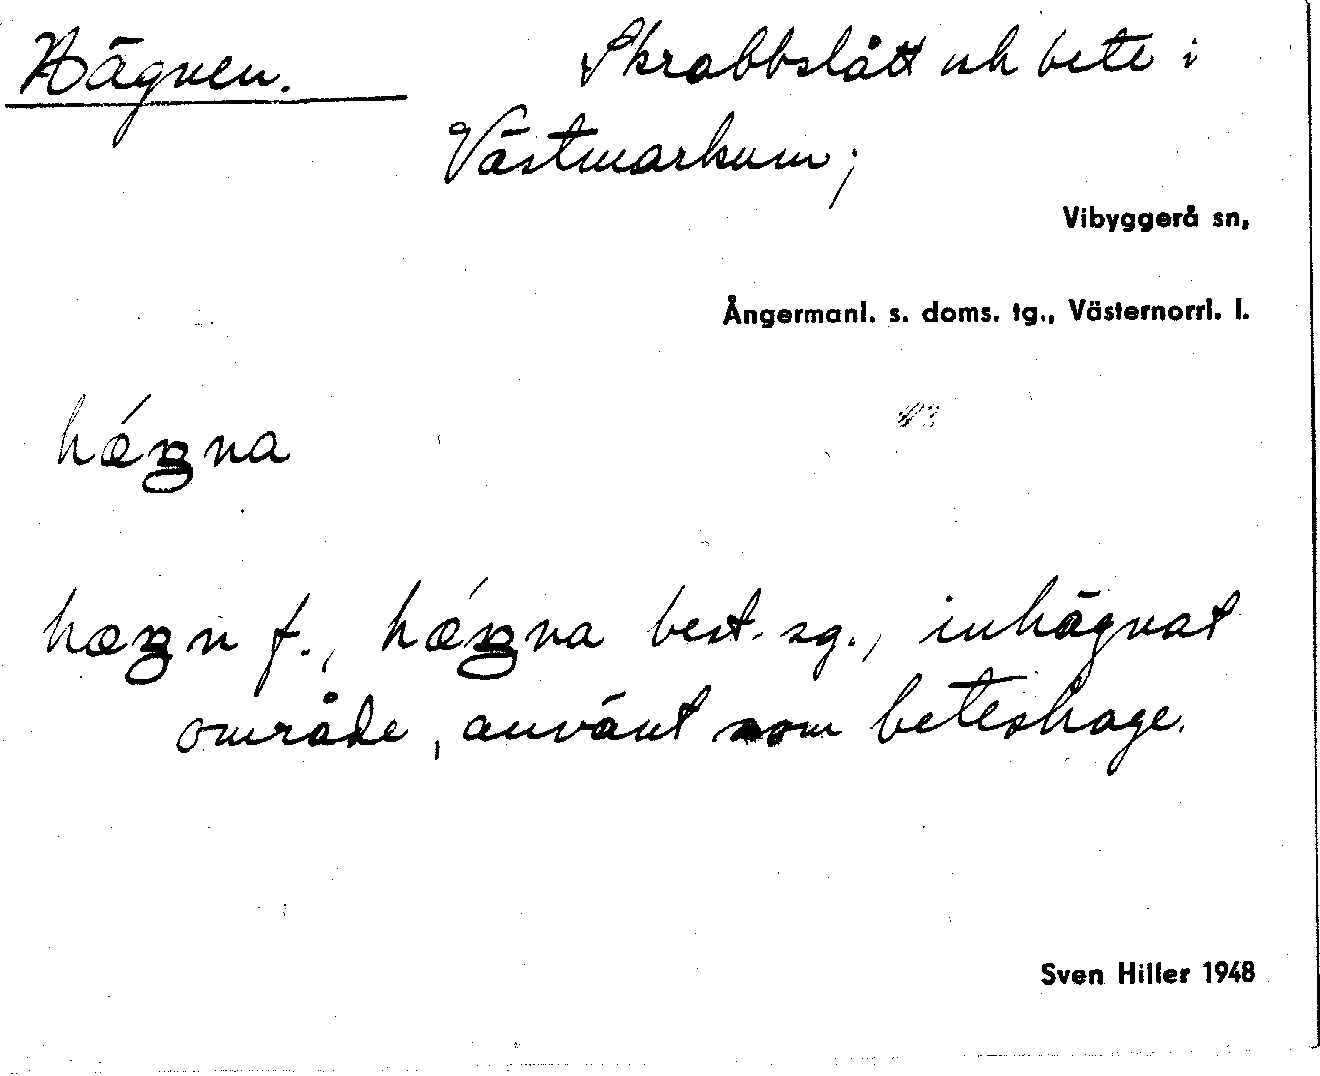 Hägnen. Skrabbslått och bete i
Västmarkum;
Vibyggerå sn,
Ångermanl. s. doms. tg., Västernorrl. l.
hǽŋna
hæŋn f., hǽŋna best. sg., inhägnat
område, använt som beteshage.
Sven Hiller 1948